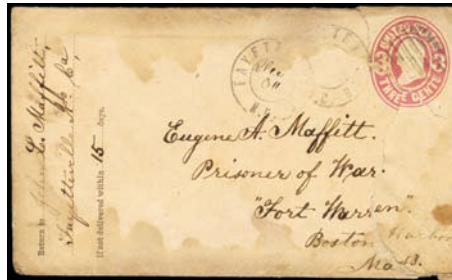 Return to John L. Maffitt,
Fayetteville No. Ca
if not delivered within 15 days.
FAYETTE
N.C.
UNITED STATES
THREE CENTS
Eugene A. Maffitt.
Prisoner of War.
"Fort Warren".
Boston Harbor
Mass.